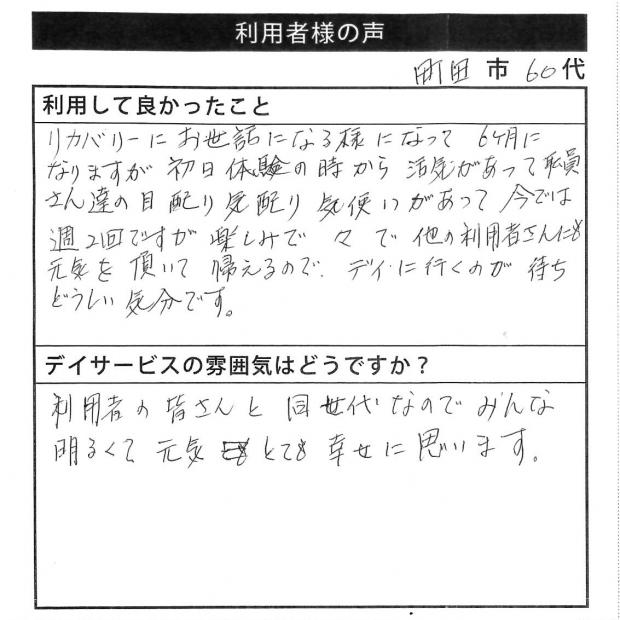 利用者様の声
町田 市 60代
利用して良かったこと
リカバリーに お世話になる様になって 6ヶ月に
なりますが 初日体験の時から 活気があって職員
さん達の目配り気配り 気使いがあって 今では
週2回ですが 楽しみで 々 で 他の利用者さんにも
元気を頂いて 帰えるので、デイに行くのが 待ち
どうしい 気分です。
デイサービスの雰囲気はどうですか？
利用者の皆さんと 同世代なので みんな
明るくて 元気 とても 幸せに 思います。